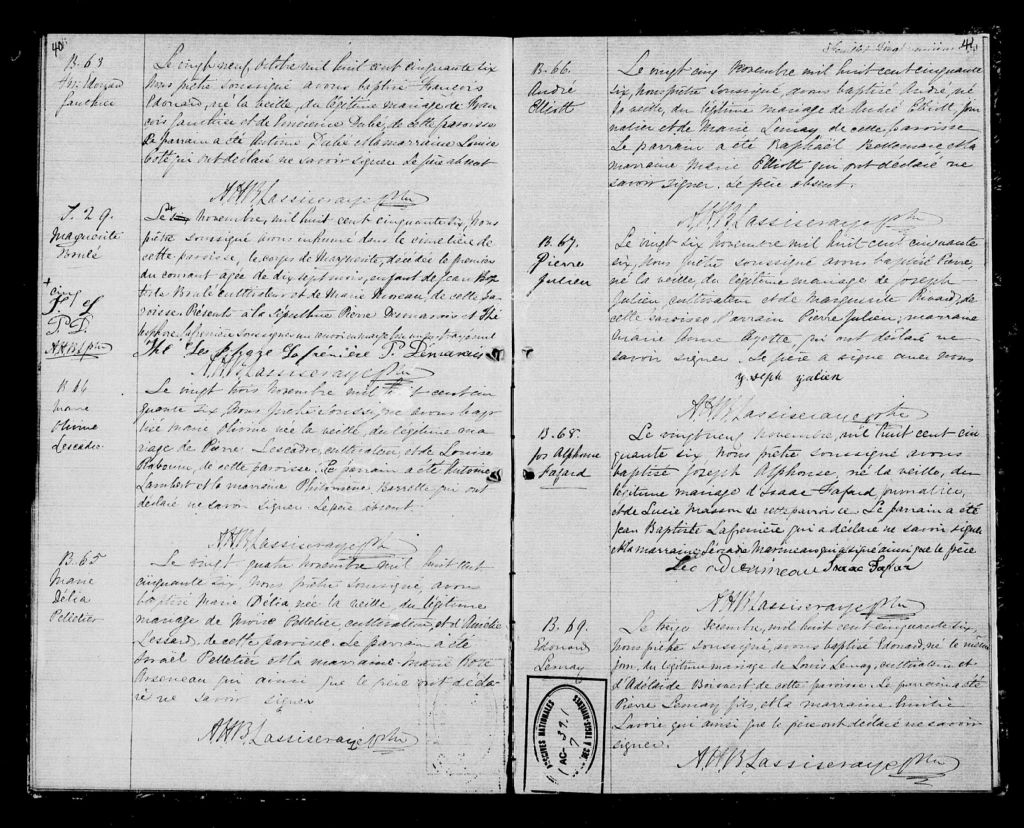 40
B. 63
gauthier
Le vingt neuf Octobre mil huit cent cinquante six
Nous prêtre soussigné avons baptisé François
Edouard, né la veille, du légitime mariage de Fran
çois Gauthier et de Dubé, de cette paroisse
Le parrain a été Antoine Dubé et la marraine Louise
Coté qui ont déclaré ne savoir signer. Le père absent
AHBLassiseraye Ptre
S. 29.
Marguerite
Boulé
Le novembre, mil huit cent cinquante six, nous
prêtre soussigné avons inhumé dans le cimetière de
cette paroisse, le corps de Marguerite, décédée le premier
du courant agée de dix sept mois, enfant de Jean Bap
tiste Boulé cultivateur et de Marie Moreau, de cette pa
roisse. Présents à la sépulture Pierre Desmarais et Thé
+ cinq
AHBL Ptre
Lafrenière P. Demarais
AHBLassiseraye Ptre
B. 64
Marie
Olivine
Lescadre
Le vingt trois Novembre mil h t cent cin
quante six Nous prêtre soussigné avons bap
tisé Marie Olivine née la veille, du légitime ma
riage de Pierre Lescadre, cultivateur, et de Louise
Rabouin, de cette paroisse. Le parrain a été Antoine
Lambert et la marraine Philomène Barrette qui ont
déclaré ne savoir signer. Le père absent.
AHBLassiseraye Ptre
B. 65
Marie
Délia
Pelletier
Le vingt quatre Novembre mil huit cent
cinquante six, Nous prêtre soussigné, avons
baptisé Marie Délia, née la veille, du légitime
mariage de Moïse Pelletier, cultivateur, et d'Amélie
Lessard, de cette paroisse. Le parrain a été
Israël Pelletier et la marraine Marie
Arseneau qui ainsi que le père ont décla
ré ne savoir signer
AHBLassiseraye Ptre
41
B. 66.
André
Elliott
Le vingt cinq Novembre mil huit cent cinquante
six, nous prêtre soussigné, avons baptisé André, né
la veille, du légitime mariage de André Elliott, jour
nalier et de Marie Lemay, de cette paroisse
Le parrain a été Raphaël Bellemare et la
marraine Marie Elliott qui ont déclaré ne
savoir signer. Le père absent.
AHBLassiseraye Ptre
B. 67.
Pierre
Julien
Le vingt six novembre mil huit cent cinquante
six, nous prêtre soussigné avons baptisé Pierre,
né la veille, du légitime mariage de Joseph
Julien cultivateur et de Marguerite Rivard, de
cette paroisse. Parrain Pierre Julien, marraine
Marie Anne Ayotte, qui ont déclaré ne
savoir signer. Le père a signé avec nous
yoseph yulien
AHBLassiseraye Ptre
B. 68.
Jos Alphonse
Fafard
Le vingt neuf Novembre, mil huit cent cin
quante six, Nous prêtre soussigné avons
baptisé Joseph Alphonse, né la veille, du
légitime mariage d'Isaac Fafard journalier,
et de Lucie Masson de cette paroisse. Le parrain a été
Jean Baptiste Lafrenière qui a déclaré ne savoir signer
et la marraine Léocadie Marineau qui a signé ainsi que le père
Isaac Fafar
AHBLassiseraye Ptre
B. 69.
Edouard
Lemay
Le treize Décembre, mil huit cent cinquante six,
nous prêtre soussigné, avons baptisé Edouard, né le même
jour, du légitime mariage de Louis Lemay, cultivateur et
d'Adélaïde Boisvert de cette paroisse. Le parrain a été
Pierre Lemay fils, et la marraine Emilie
Savoie qui ainsi que le père ont déclaré ne savoir
signer.
AHBLassiseraye Ptre
ARCHIVES NATIONALES
DU Q. A TROIS-RIVIERES